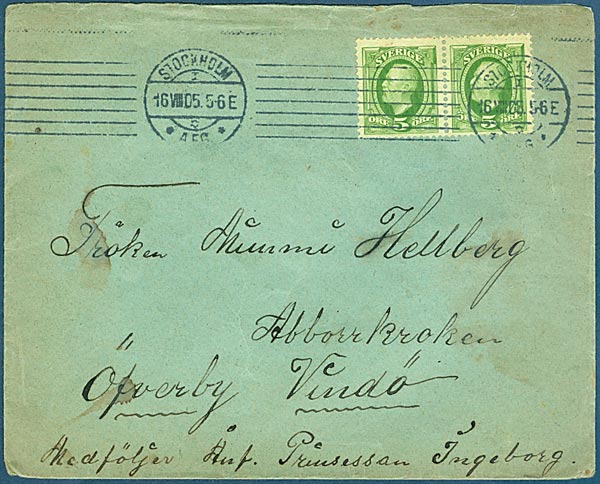 STOCKHOLM
1
16 VIII 05. 5-6 E
5
AFG.
SVERIGE
ÖRE 5 ÖRE
SVERIGE
5 ÖRE
STOCKHOLM
16 VIII 05. 5-6 E
Fröken Mimmi Hellberg
Abborrkroken
Öfverby Vindö
Medföljer Ånf. Prinsessan Ingeborg.